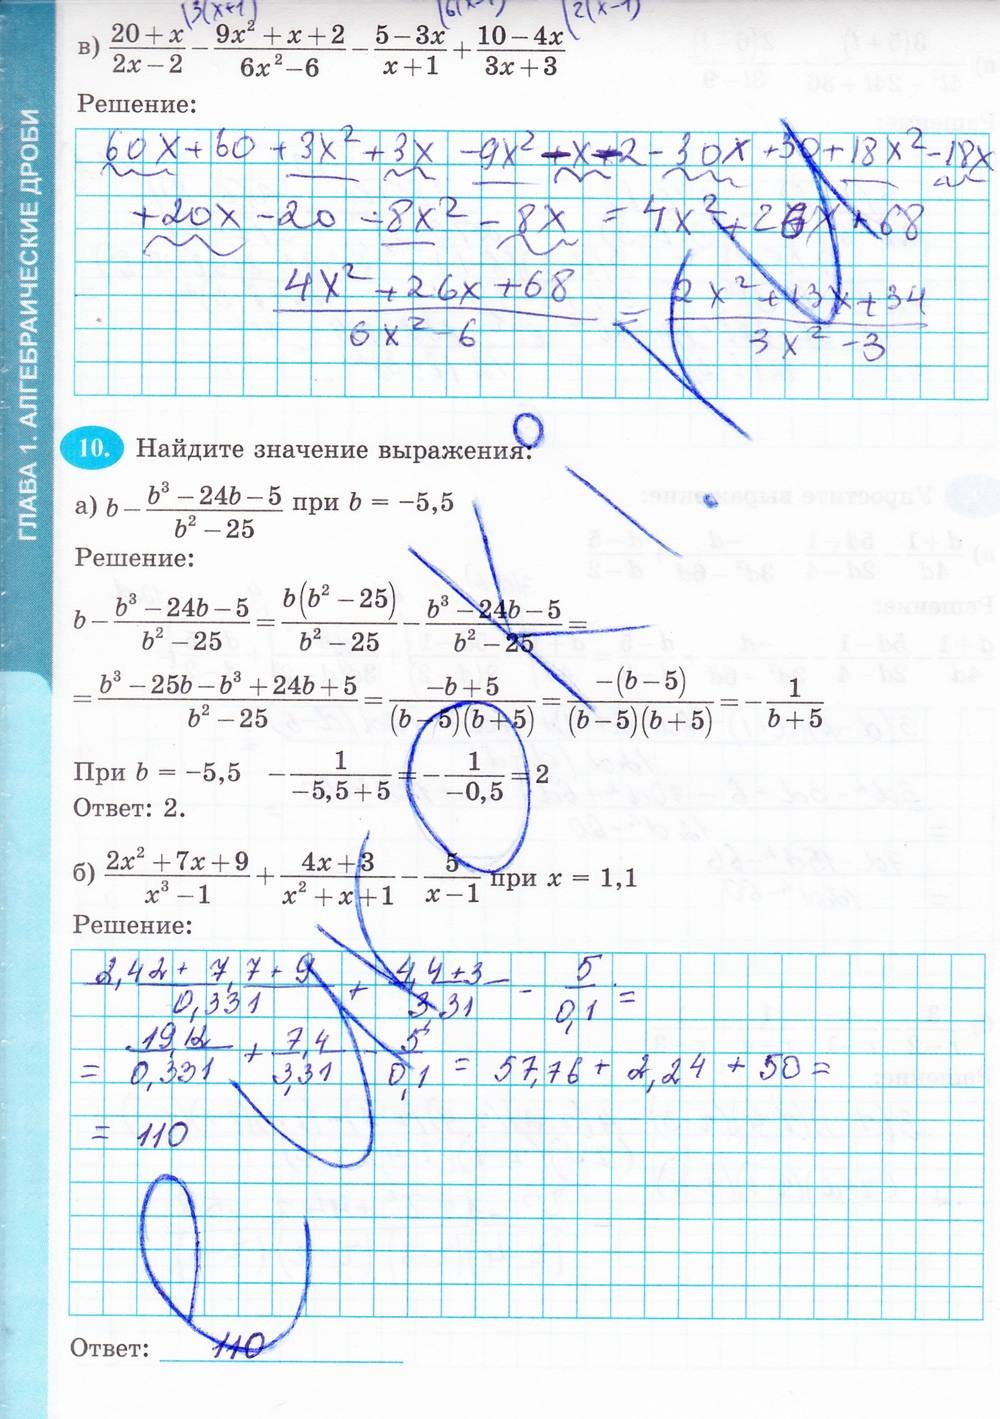 (3(x+1) (6(x-1) (2(x-1)
в) (20 + x)/(2x − 2) − (9x² + x + 2)/(6x² − 6) − (5 − 3x)/(x + 1) + (10 − 4x)/(3x + 3)
Решение:
60x + 60 + 3x² + 3x - 9x² - x - 2 - 30x + 30 + 18x² - 18x
+ 20x - 20 - 8x² - 8x = 4x² + 26x + 68
(4x² + 26x + 68)/(6x² - 6) = (2x² + 13x + 34)/(3x² - 3)
ГЛАВА 1. АЛГЕБРАИЧЕСКИЕ ДРОБИ
10. Найдите значение выражения:
а) b − (b³ − 24b − 5)/(b² − 25) при b = −5,5
Решение:
b − (b³ − 24b − 5)/(b² − 25) = b(b² − 25)/(b² − 25) − (b³ − 24b − 5)/(b² − 25) =
= (b³ − 25b − b³ + 24b + 5)/(b² − 25) = (−b + 5)/((b − 5)(b + 5)) = −(b − 5)/((b − 5)(b + 5)) = − 1/(b + 5)
При b = −5,5 − 1/(−5,5 + 5) = − 1/(−0,5) = 2
Ответ: 2.
б) (2x² + 7x + 9)/(x³ − 1) + (4x + 3)/(x² + x + 1) − 5/(x − 1) при x = 1,1
Решение:
(2,42 + 7,7 + 9)/0,331 + (4,4 + 3)/3,31 - 5/0,1 =
= 19,12/0,331 + 7,4/3,31 - 5/0,1 = 57,76 + 2,24 + 50 =
= 110
Ответ: 110